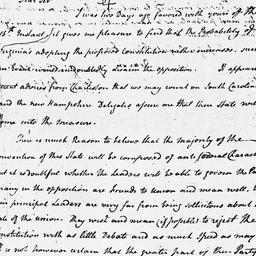 Dear Sir
I was two Days ago favored with yours of the
15th Instant. It gives me pleasure to find that the Probability of
Virginia's adopting the proposed constitution with
an Event would undoubtedly disarm the opposition. It appears
recent advices from Charleston that we may count on South Carolina
and the new Hampshire Delegates assure me that their State will
come into the measure.
There is much Reason to believe that the majority of the
convention of this State will be composed of antifœderal Charac
it is doubtful whether the Leaders will be able to govern the Pa
many in the opposition are Friends to union and mean well, b
principal Leaders are very far from being sollicitous about
of the union. They wish and mean (if possible) to reject the
constitution with as little Debate and as much Speed as may
is not however certain that the greater part of their Party